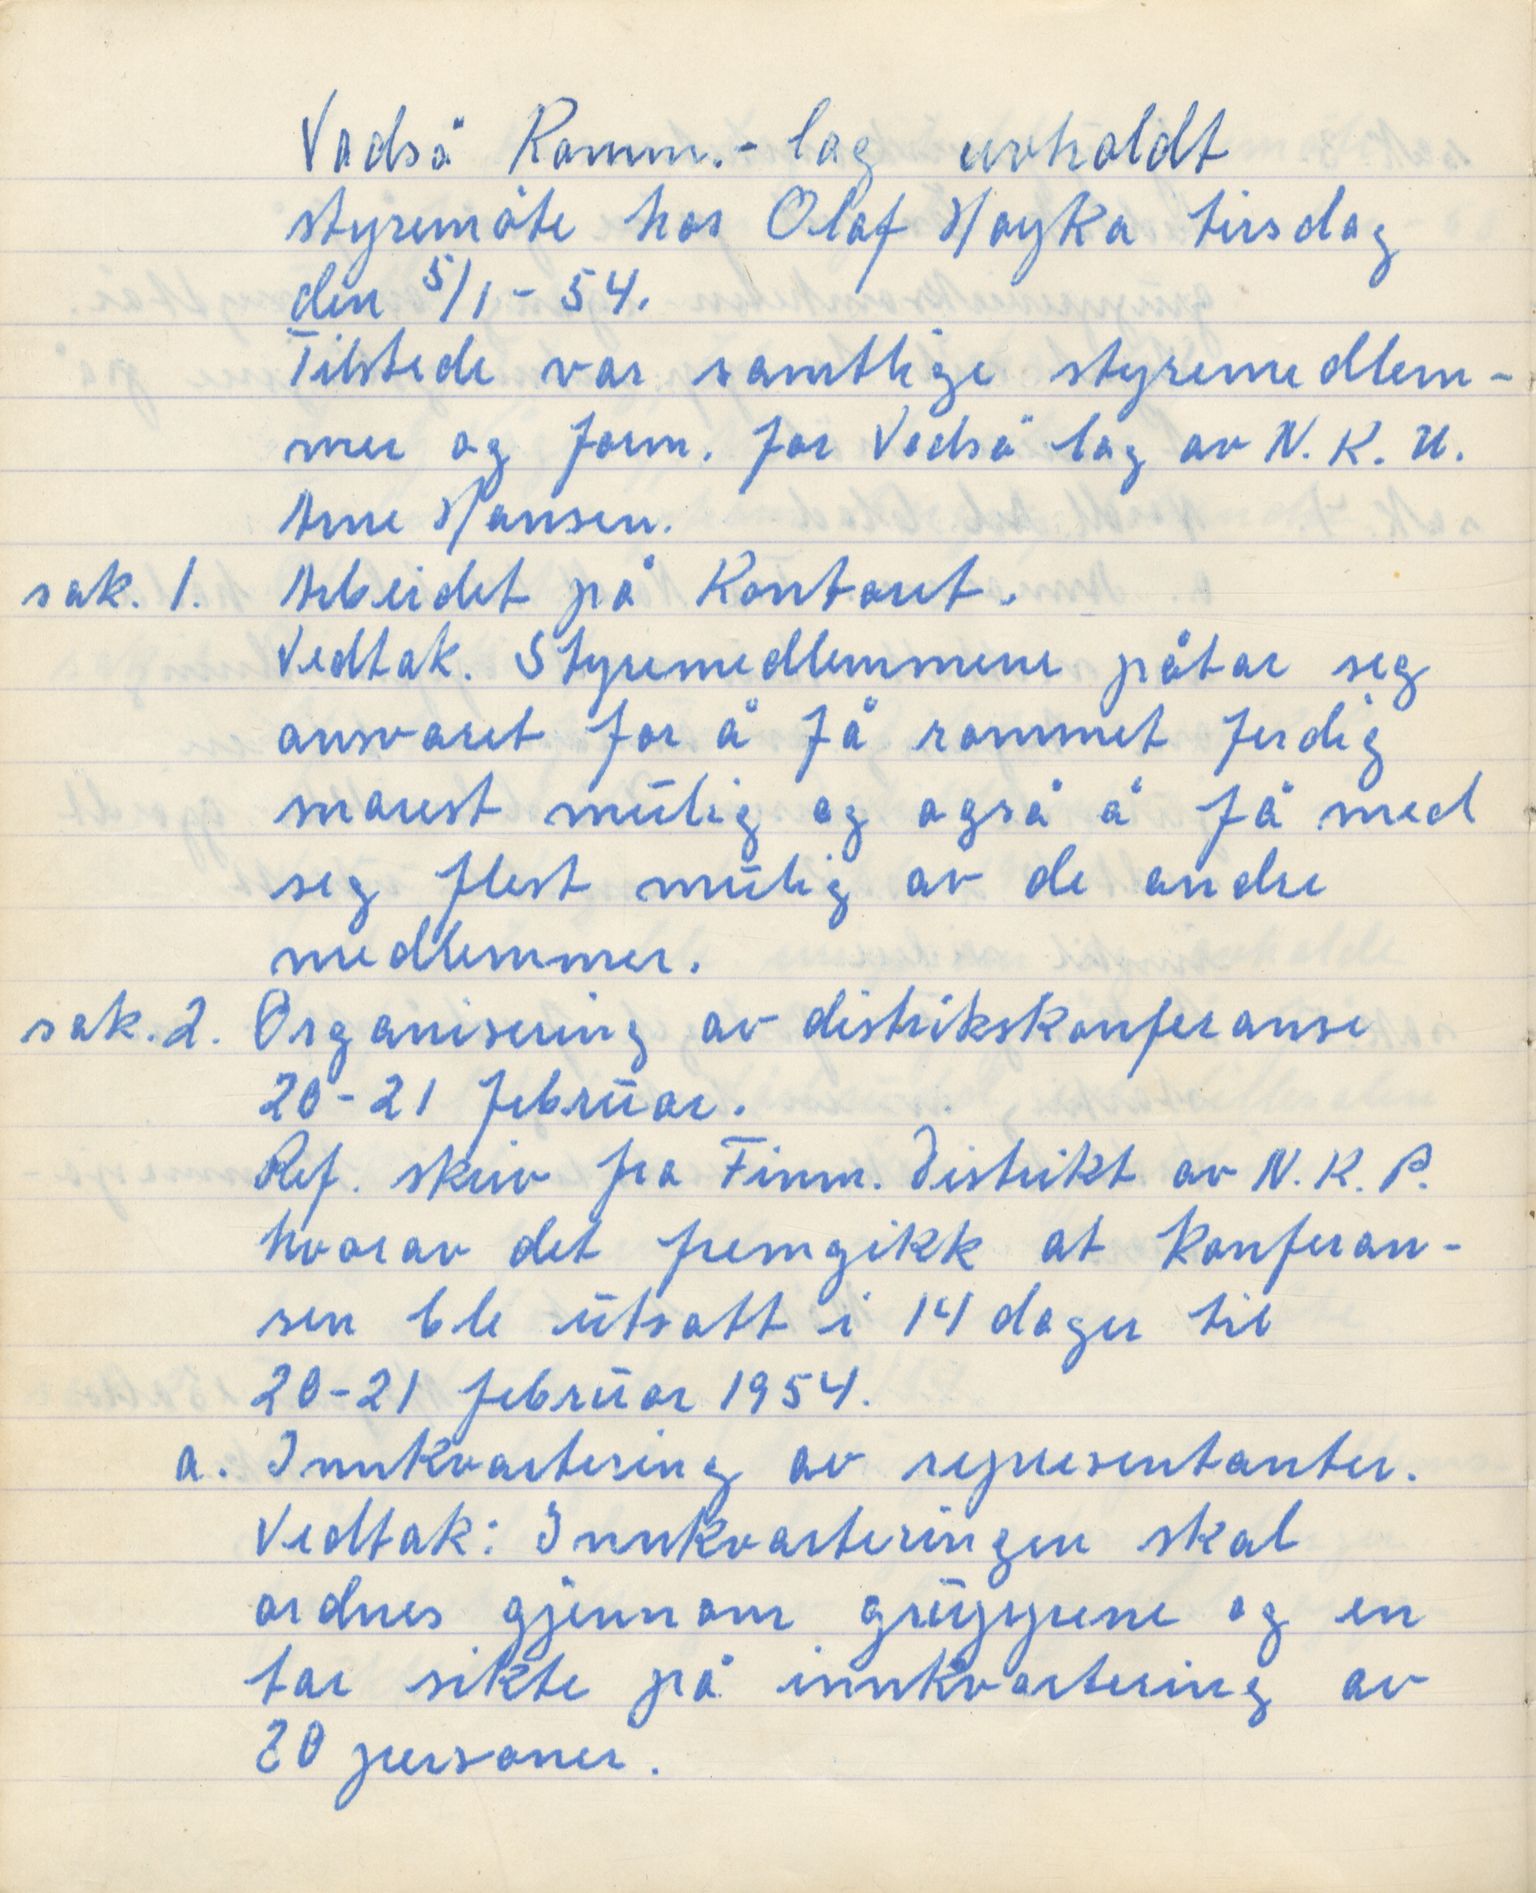 Vadsö Komm.-lag avholdt
styremöte hos Olaf Hayka tirsdag
den 5/1-54.
Tilstede var samtlige styremedlem-
mer og form. for Vadsö lag av N.K.U.
Arne Hansen.
sak. 1. Arbeidet på Kontoret.
Vedtak. Styremedlemmene påtar seg
ansvaret for å få rommet ferdig
snarest mülig og også å få med
seg flest mülig av de andre
medlemmer.
sak. 2. Organisering av distrikskonferanse
20-21 febrüar.
Ref. skriv fra Finnm. Distrikt av N.K.P.
hvorav det fremgikk at konferan-
sen ble ütsatt i 14 dager til
20-21 febrüar 1954.
a. Innkvartering av representanter.
Vedtak: Innkvarteringen skal
ordnes gjennom grüppene og en
tar sikte på innkvartering av
20 personer.